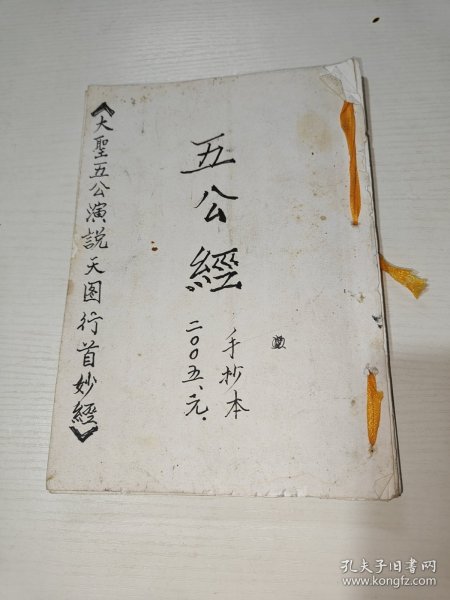 五公經
手抄本
二〇〇五、元、
《大聖五公演説天图行首妙經》
孔夫子旧书网
www.kongfz.com